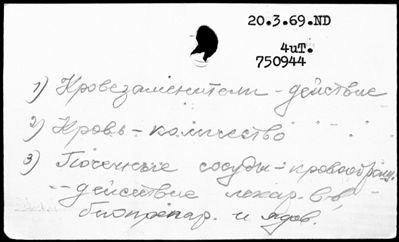 20.3.69.ND
4иТ.
750944
1) Кровезаменители - действие
2) Кровь - количество " - "
3) Почечные сосуды - кровообращ.
-"- действие лекар. в-в,
биопрепар. и ядов.